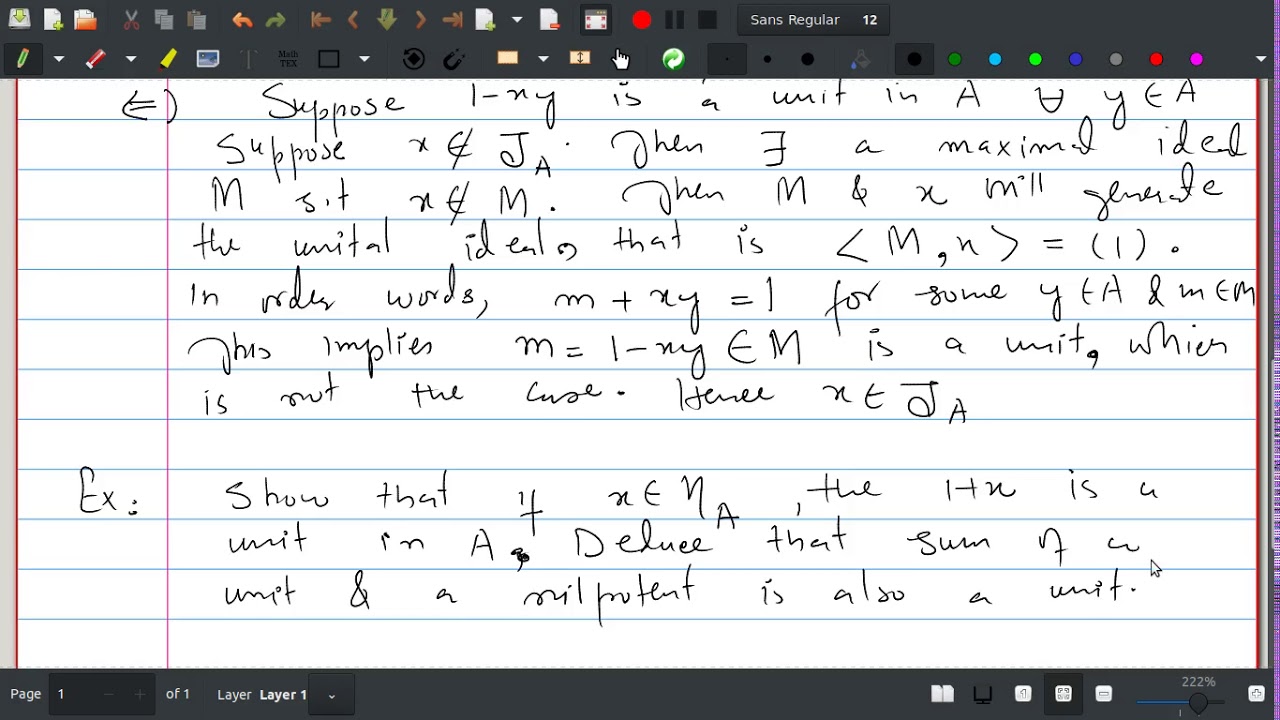 Sans Regular 12
Math TEX
(⇐) Suppose 1-xy is a unit in A ∀ y∈A
Suppose x ∉ J_A. Then ∃ a maximal ideal
M s.t x ∉ M. Then M & x will generate
the unital ideal, that is <M,x> = (1).
In order words, m + xy = 1 for some y∈A & m∈M
This implies m = 1-xy ∈ M is a unit, which
is not the case. Hence x ∈ J_A
Ex: Show that if x∈ η_A, the 1+x is a
unit in A. Deduce that sum of a
unit & a nilpotent is also a unit.
Page 1 of 1 Layer Layer 1 222%